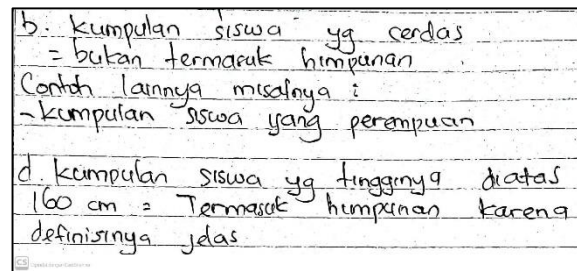 b. Kumpulan siswa yg cerdas
= bukan termasuk himpunan
Contoh lainnya misalnya :
- kumpulan siswa yang perempuan
d. Kumpulan siswa yg tingginya diatas
160 cm = Termasuk himpunan karena
definisinya jelas
CS